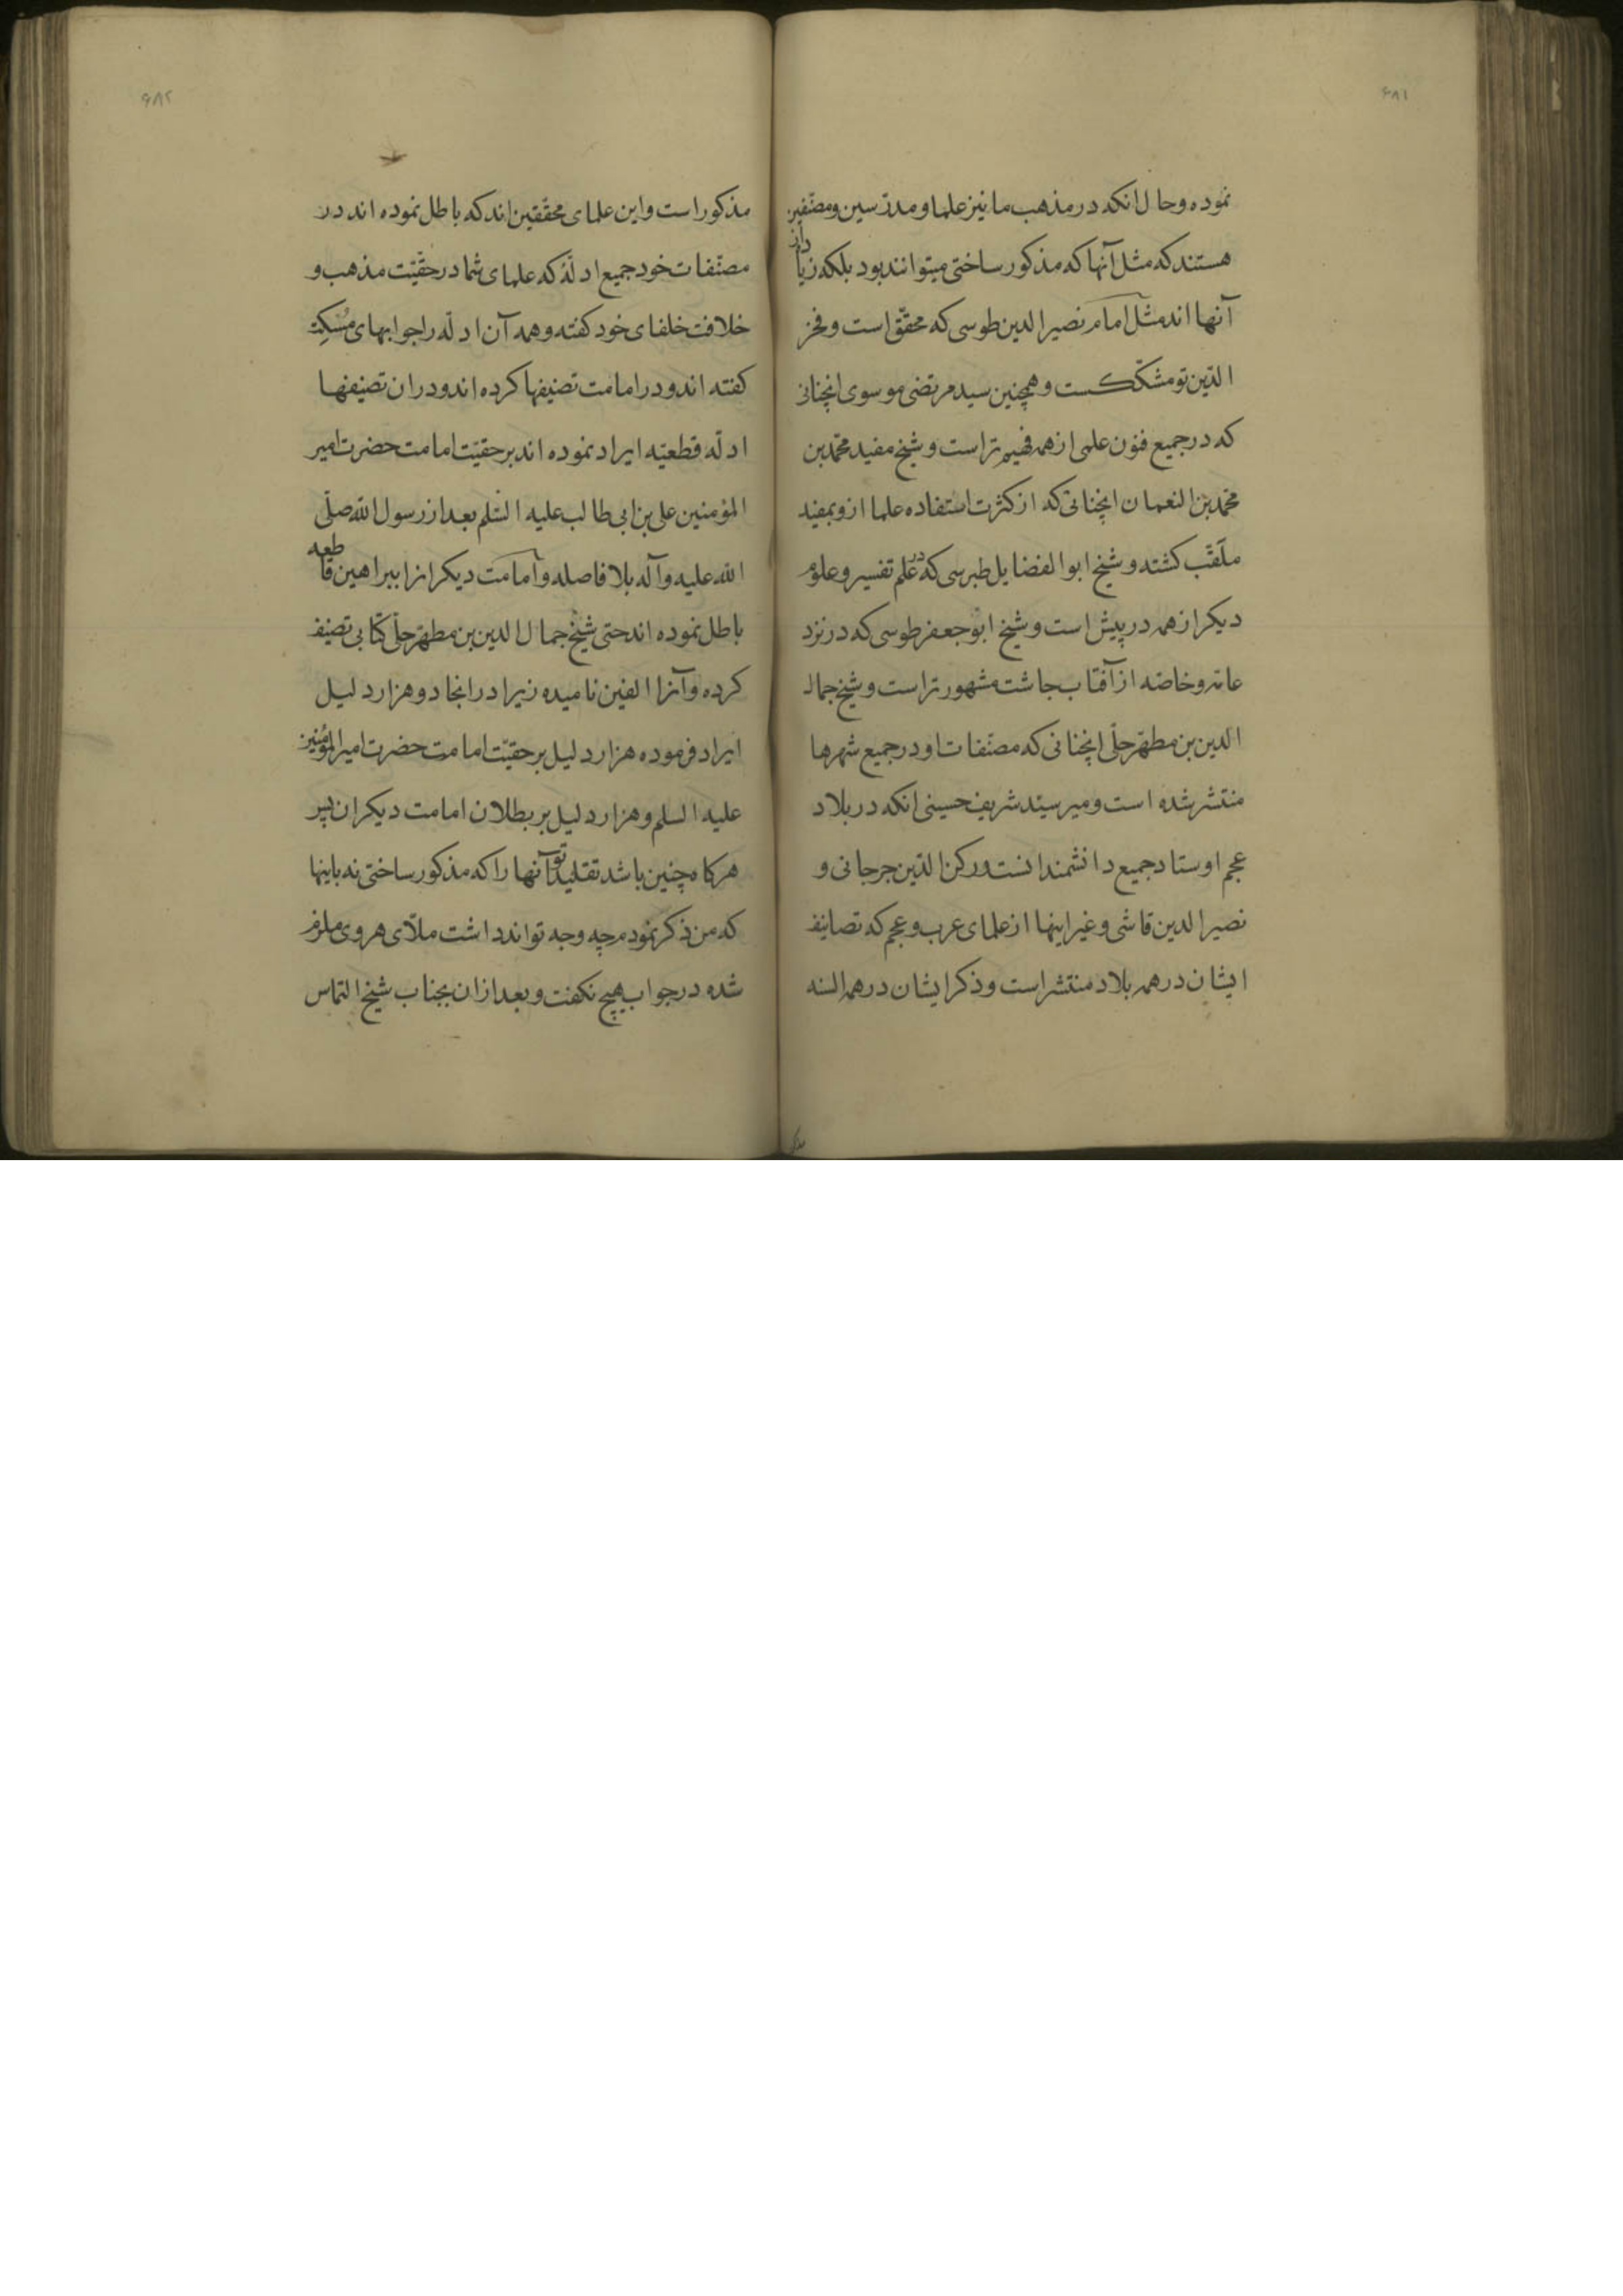 ۶۸۱
نموده وحال انکه در مذهب ما نیز علما و مدرّسین ومصنّفین
هستند که مثل آنها که مذکور ساختی میتوانند بود بلکه زیاده از
آنها اند مثل امام نصیر الدین طوسی که محقّق است و فخر
الدّین تو مشکّکست وهمچنین سید مرتضی موسوی انچنانی
که در جمیع فنون علمی از همه فهیم تر است و شیخ مفید محمّد بن
محمّد بن النعمان انچنانی که از کثرت استفاده علما از و بمفید
ملقّب کشته و شیخ ابوالفضایل طبرسی که در علم تفسیر و علوم
دیکر از همه در پیش است و شیخ ابوجعفر طوسی که در نزد
عامّه و خاصّه از آفتاب جاشت مشهورتر است و شیخ جمال
الدین بن مطهّر حلّی انچنانی که مصنّفات او در جمیع شهرها
منتشر شده است و میر سیّد شریف حسینی انکه در بلاد
عجم اوستاد جمیع دانشمندانست و رکن الدّین جرجانی و
نصیر الدین قاشی و غیر اینها از علمای عرب و عجم که تصانیف
ایشان در همه بلاد منتشر است و ذکر ایشان در همه السنه
۶۸۲
مذکور است و این علمای محقّقین اند که باطل نموده اند در
مصنّفات خود جمیع ادلّهٔ که علمای شما در حقّیّت مذهب و
خلافت خلفای خود کفته و همه آن ادلّه را جوابهای مُسکِت
کفته اند و در امامت تصنیفها کرده اند و در ان تصنیفها
ادلّه قطعیّه ایراد نموده اند بر حقیّت امامت حضرت امیر
المؤمنین علی بن ابی طالب علیه السّلم بعد از رسول الله صلّی
الله علیه وآله بلا فاصله و امامت دیکرانرا ببراهین قاطعه
باطل نموده اند حتی شیخ جمال الدین بن مطهّر حلّی کتابی تصنیف
کرده وآنرا الفین نامیده زیرا در انجا دو هزار دلیل
ایراد فرموده هزار دلیل بر حقیّت امامت حضرت امیر المؤمنین
علیه السلم و هزار دلیل بر بطلان امامت دیکران پس
هرکاه چنین باشد تقلید تو آنها را که مذکور ساختی نه باینها
که من ذکر نمودم چه وجه تواند داشت ملّای هروی ملزم
شده در جواب هیچ نکفت و بعد از ان بجناب شیخ التماس